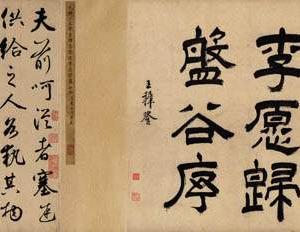 李愿歸
盤谷序
王穉登
夫前呵從者塞途
供給之人各執其物